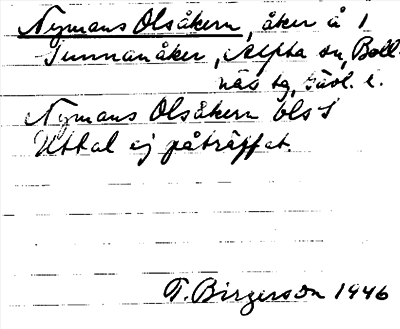 Nymans Olsåkern, åker å 1
Tunnanåker, Alpha sn, Boll-
näs tg, Gävl. l.
Nymans Olsåkern bls 1
Uttal ej påträffat.
T. Birgerson 1946